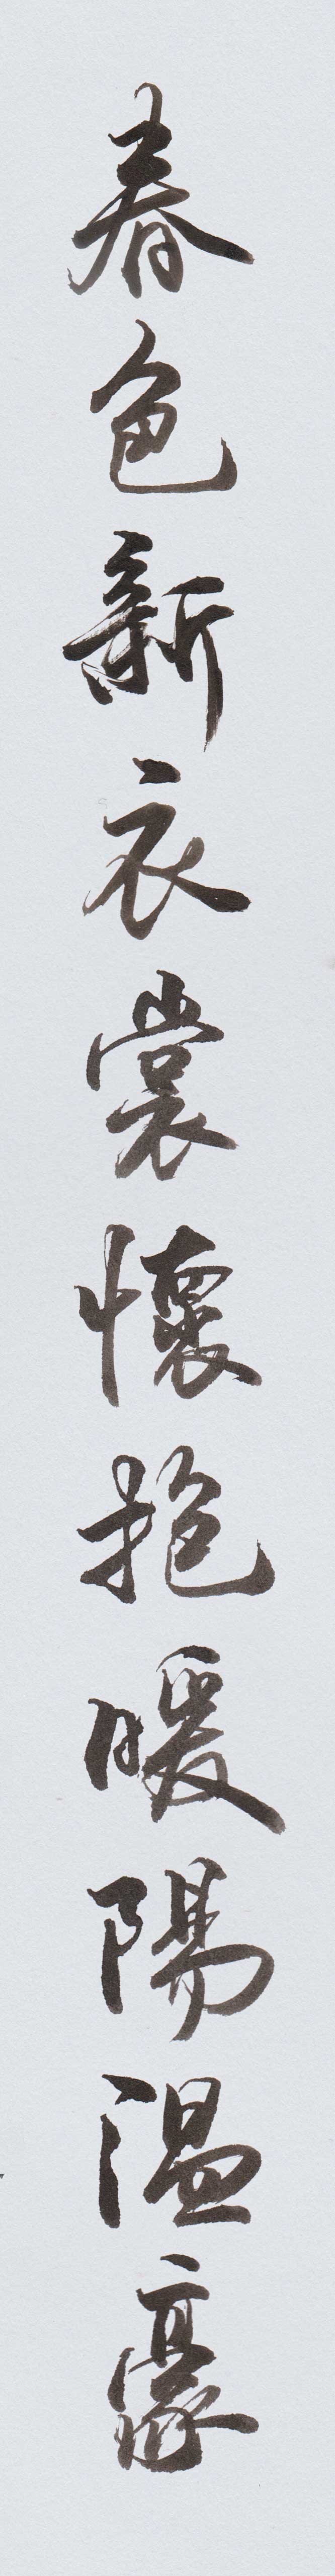 春色新衣裳懷抱暖陽溫豪